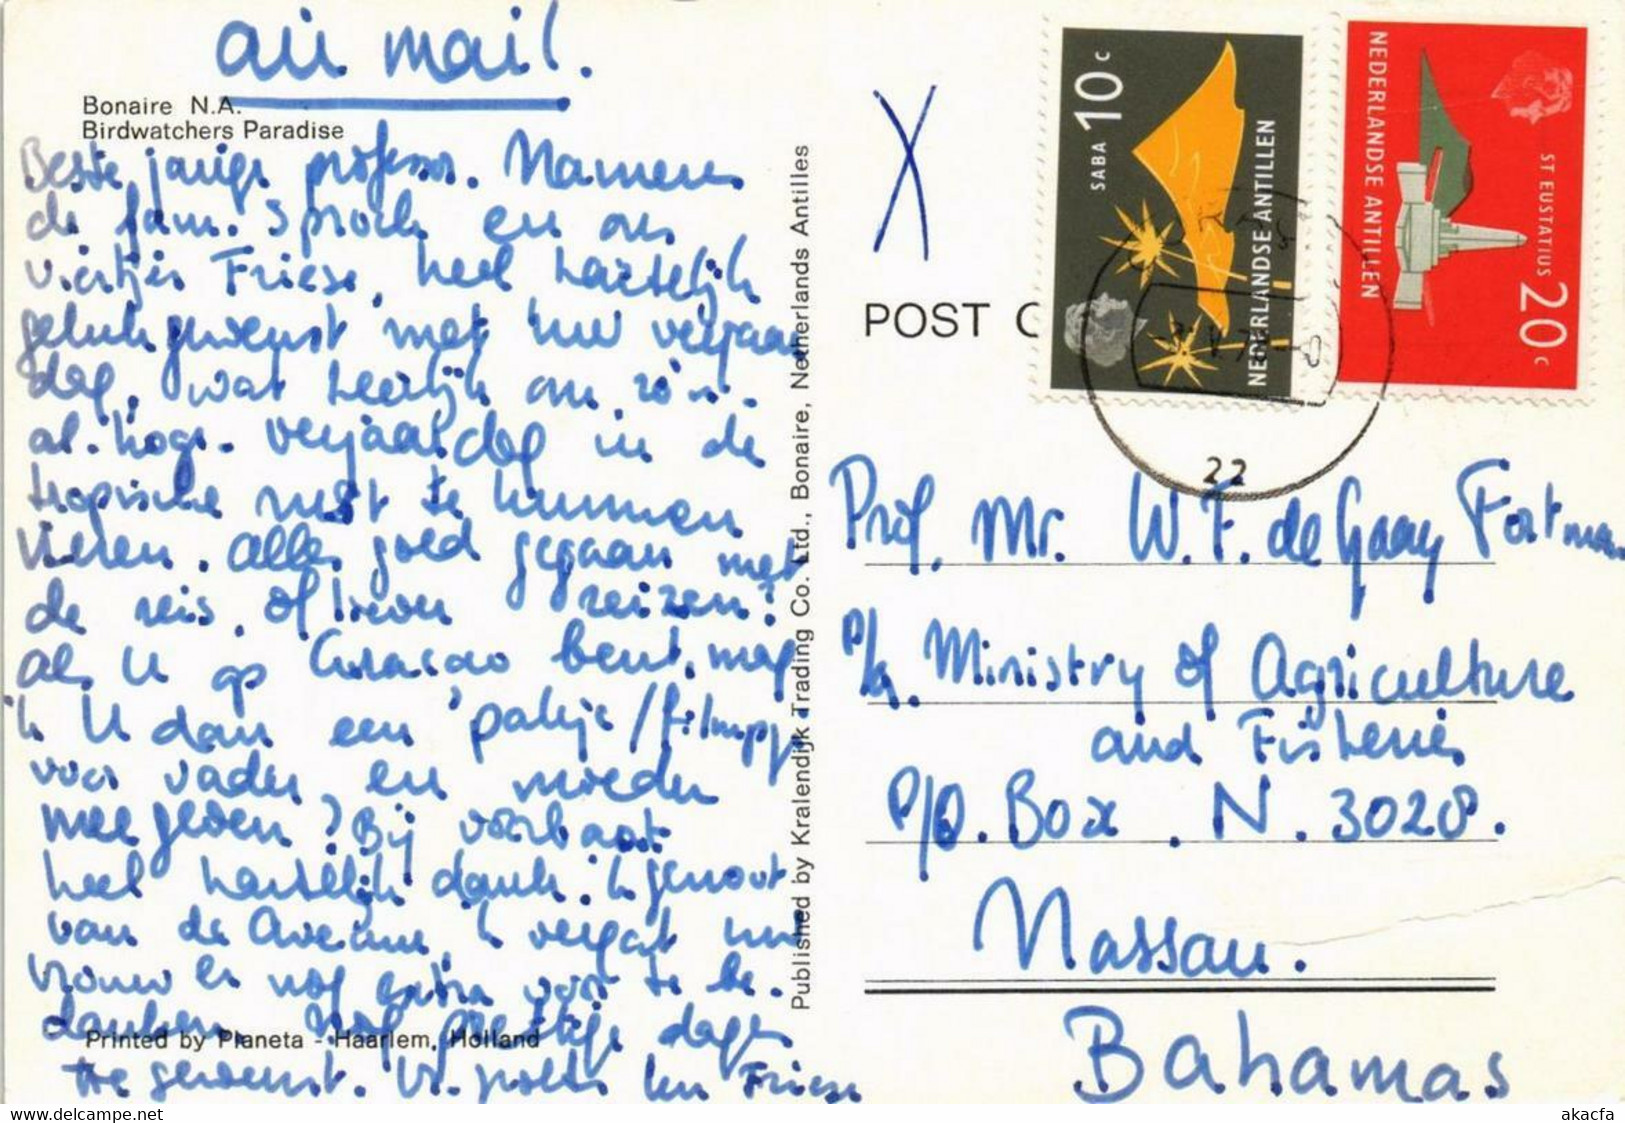 air mail.
Bonaire N.A.
Birdwatchers Paradise
Beste jarige professor. Namens
de fam. Sprock en ons
viertjes Friese, heel hartelijk
gelukgewenst met Uw verjaar
dag, wat heerlijk om zo'n
verjaardag in de
tropische rust te kunnen
vieren. Alles goed gegaan met
de reis, of treinreizen?
Als U op Curacao bent, mag
ik U dan een pakje/filmpje
voor vader en moeder
meegeven? Bij voorbaat
heel hartelijk dank. Ik genoot
van de, ik vergat Uw
vrouw er nog extra voor te be-
danken. Nog prettige dagen
toegewenst. Fam Friese
Printed by Planeta - Haarlem, Holland
Published by Kralendijk Trading Co. Ltd., Bonaire, Netherlands Antilles
POST C
SABA 10 c
NEDERLANDSE ANTILLEN
NEDERLANDSE ANTILLEN
ST EUSTATIUS 20 c
22
Prof. Mr. W.F. de Gaay Fortman
p/a. Ministry of Agriculture
and Fisheries
P/O. Box . N. 3028.
Nassau.
Bahamas
https://www.delcampe.net
akacfa